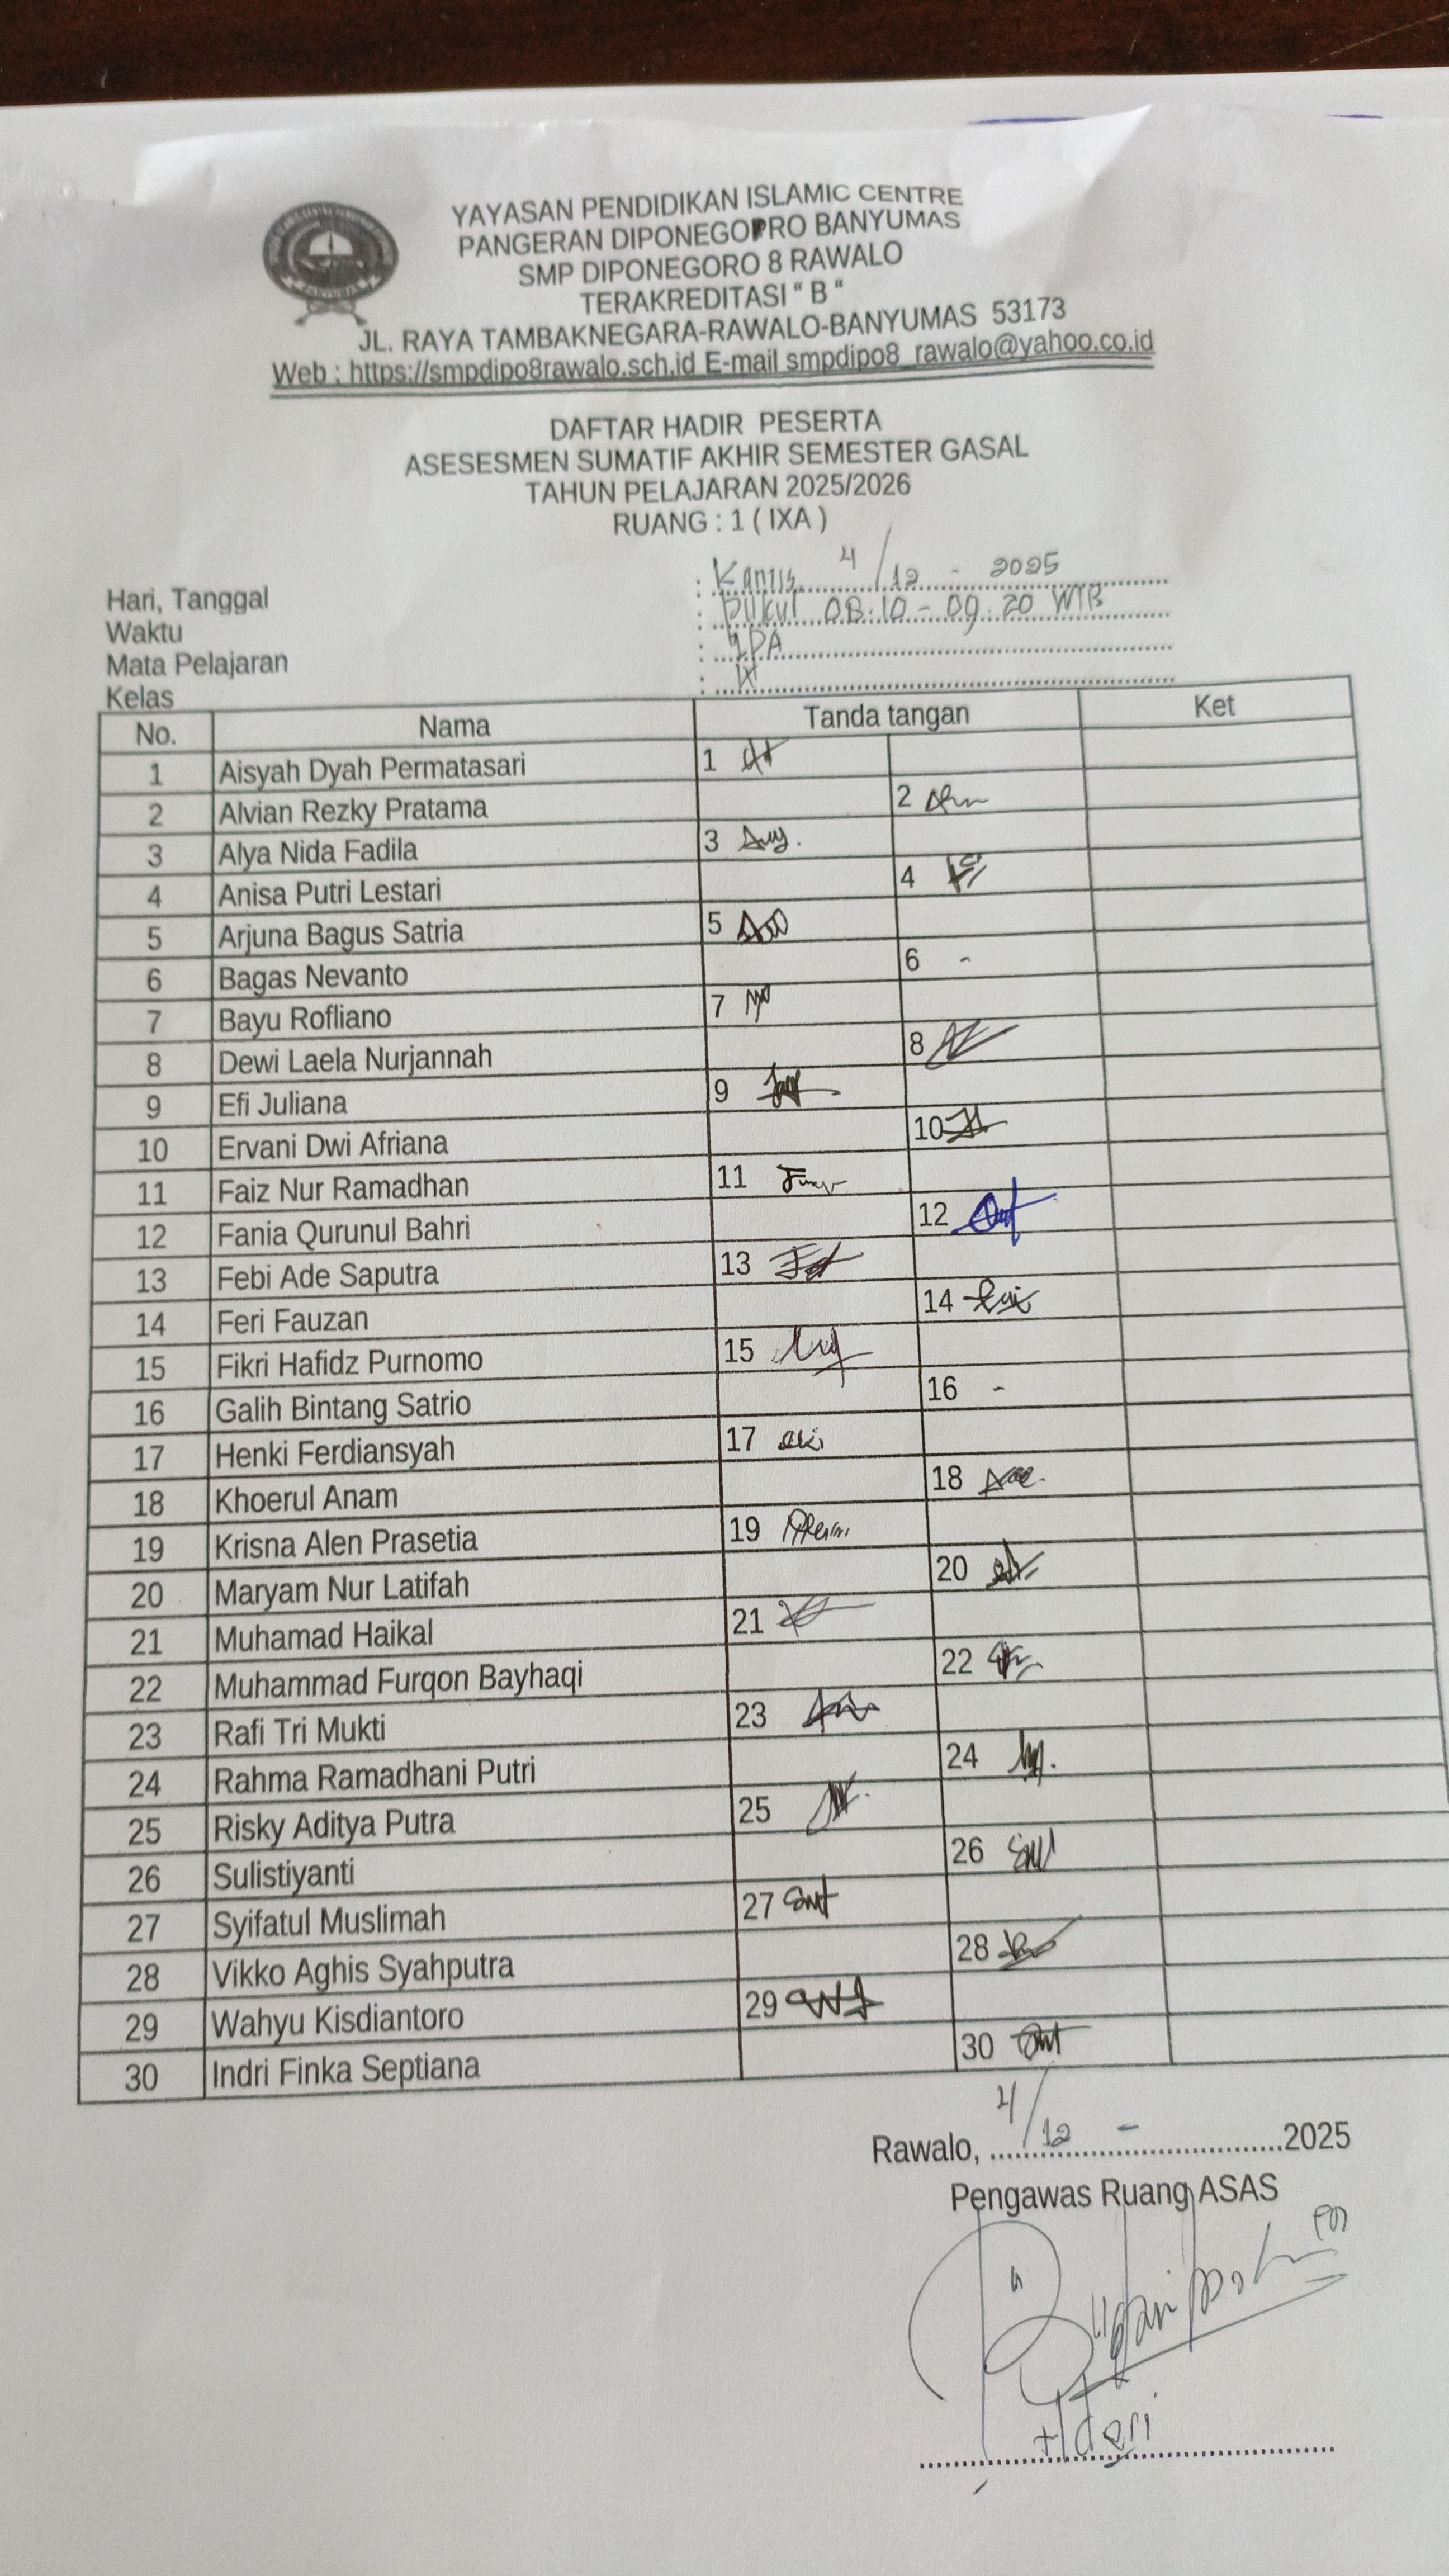 YAYASAN PENDIDIKAN ISLAMIC CENTRE
PANGERAN DIPONEGOPRO BANYUMAS
SMP DIPONEGORO 8 RAWALO
TERAKREDITASI " B "
JL. RAYA TAMBAKNEGARA-RAWALO-BANYUMAS 53173
Web : https://smpdipo8rawalo.sch.id E-mail smpdipo8_rawalo@yahoo.co.id
DAFTAR HADIR PESERTA
ASESESMEN SUMATIF AKHIR SEMESTER GASAL
TAHUN PELAJARAN 2025/2026
RUANG : 1 ( IXA )
Hari, Tanggal : Kamis, 4/12 - 2025
Waktu : pukul 08.10 - 09.20 WIB
Mata Pelajaran : IPA
Kelas : IX
No. Nama Tanda tangan Ket
1 Aisyah Dyah Permatasari 1
2 Alvian Rezky Pratama 2
3 Alya Nida Fadila 3
4 Anisa Putri Lestari 4
5 Arjuna Bagus Satria 5
6 Bagas Nevanto 6 -
7 Bayu Rofliano 7
8 Dewi Laela Nurjannah 8
9 Efi Juliana 9
10 Ervani Dwi Afriana 10
11 Faiz Nur Ramadhan 11
12 Fania Qurunul Bahri 12
13 Febi Ade Saputra 13
14 Feri Fauzan 14
15 Fikri Hafidz Purnomo 15
16 Galih Bintang Satrio 16 -
17 Henki Ferdiansyah 17
18 Khoerul Anam 18
19 Krisna Alen Prasetia 19
20 Maryam Nur Latifah 20
21 Muhamad Haikal 21
22 Muhammad Furqon Bayhaqi 22
23 Rafi Tri Mukti 23
24 Rahma Ramadhani Putri 24
25 Risky Aditya Putra 25
26 Sulistiyanti 26
27 Syifatul Muslimah 27
28 Vikko Aghis Syahputra 28
29 Wahyu Kisdiantoro 29
30 Indri Finka Septiana 30
Rawalo, 4/12 - 2025
Pengawas Ruang ASAS